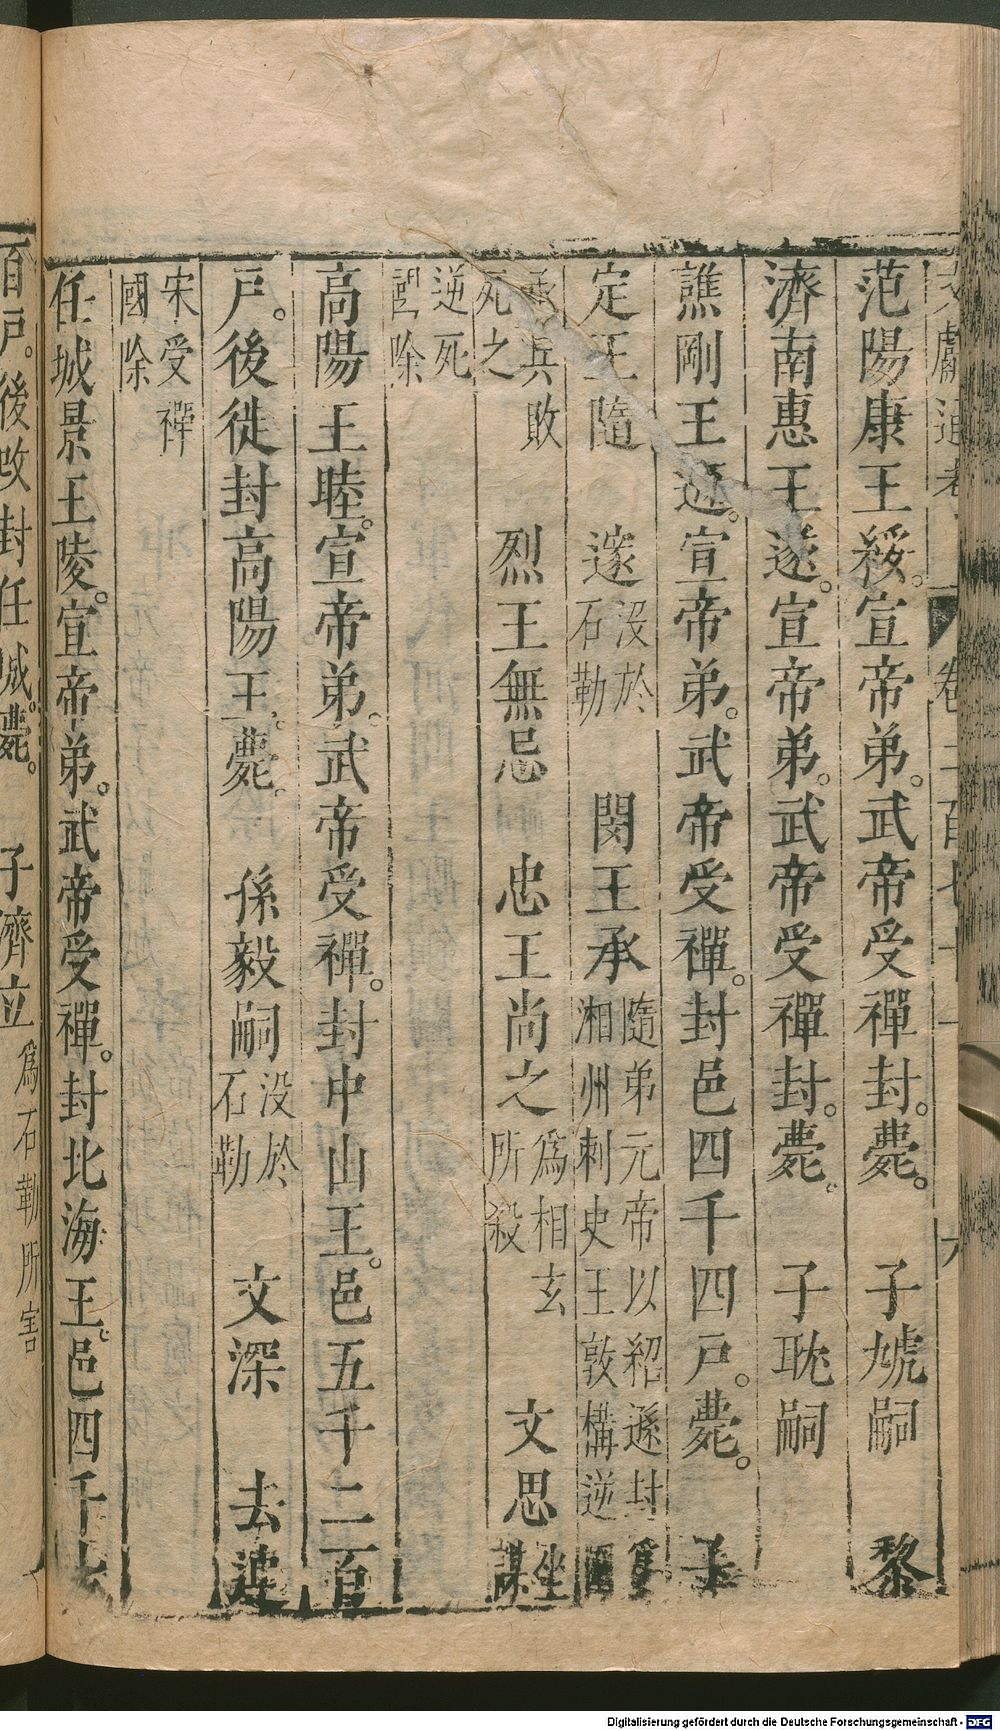 文獻通考 卷二百七十一 六
范陽康王綏。宣帝弟。武帝受禪封。薨。 子虓嗣 黎
濟南惠王遂。宣帝弟。武帝受禪封。薨。 子耽嗣
譙剛王遜。宣帝弟。武帝受禪。封邑四千四戶。薨。 子
定王隨 邃 沒於石勒 閔王承 隨弟元帝以紹遜封爲湘州刺史王敦構逆
兵敗死之 烈王無忌 忠王尚之 爲桓玄所殺 文思 坐謀
逆死國除
高陽王睦。宣帝弟。武帝受禪。封中山王。邑五千二百
戶。後徙封高陽王。薨。 孫毅嗣 沒於石勒 文深 去逮
宋受禪國除
任城景王陵。宣帝弟。武帝受禪。封北海王。邑四千七
百戶。後改封任城。薨。 子濟立 爲石勒所害
Digitalisierung gefördert durch die Deutsche Forschungsgemeinschaft - DFG